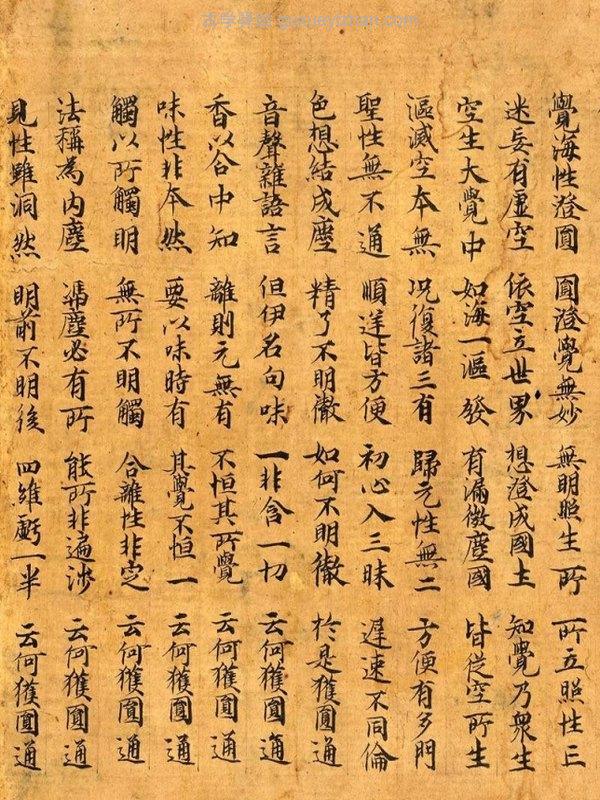 覺海性澄圓 圓澄覺無妙 無明照生所 所立照性亡
迷妄有虛空 依空立世界 想澄成國土 知覺乃衆生
空生大覺中 如海一漚發 有漏微塵國 皆從空所生
漚滅空本無 況復諸三有 歸元性無二 方便有多門
聖性無不通 順逆皆方便 初心入三昧 遲速不同倫
色想結成塵 精了不明徹 如何不明徹 於是獲圓通
音聲雜語言 但伊名句味 一非含一切 云何獲圓通
香以合中知 離則元無有 不恒其所覺 云何獲圓通
味性非本然 要以味時有 其覺不恒一 云何獲圓通
觸以所觸明 無所不明觸 合離性非定 云何獲圓通
法稱為內塵 憑塵必有所 能所非遍涉 云何獲圓通
見性雖洞然 明前不明後 四維虧一半 云何獲圓通